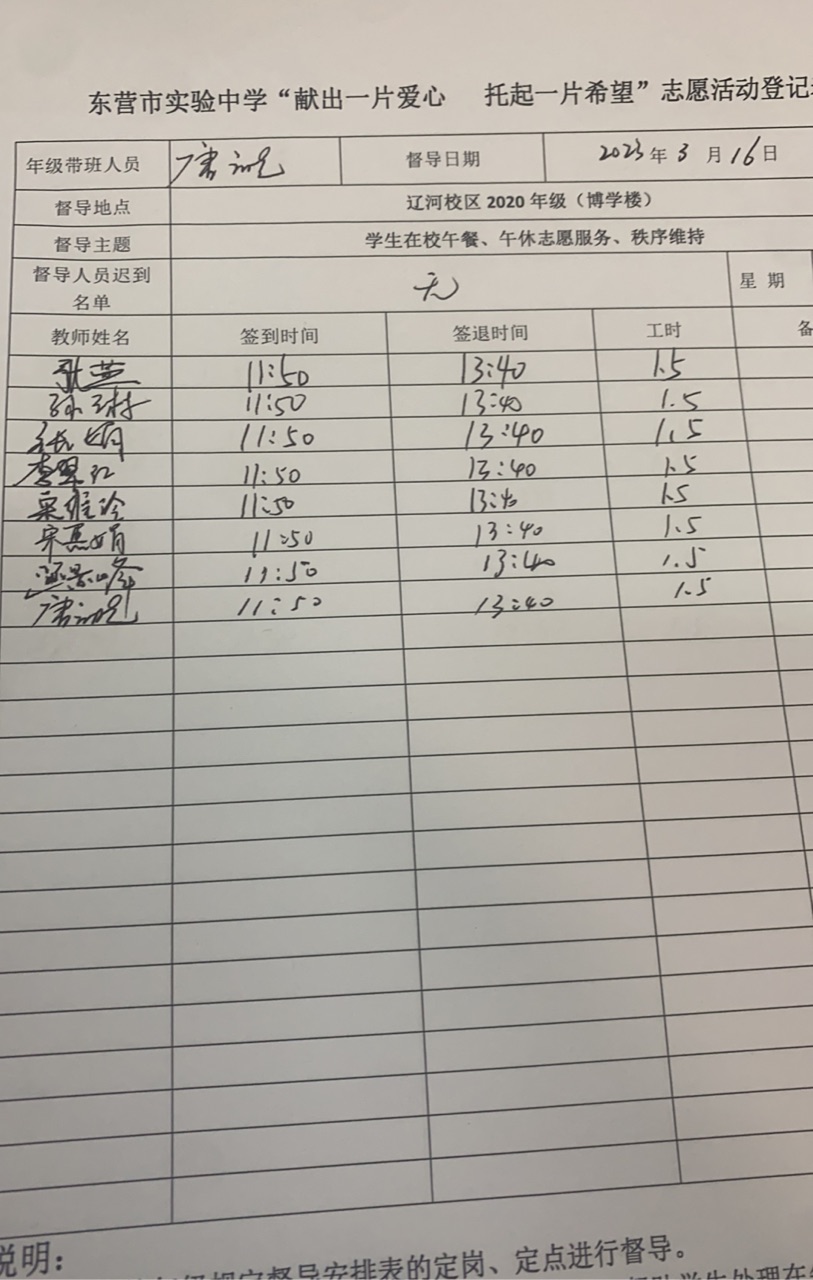 东营市实验中学“献出一片爱心 托起一片希望”志愿活动登记
年级带班人员 唐 督导日期 2023年3月16日
督导地点 辽河校区2020年级（博学楼）
督导主题 学生在校午餐、午休志愿服务、秩序维持
督导人员迟到 无 星 期
名单
教师姓名 签到时间 签退时间 工时 备
耿燕 11:50 13:40 1.5
孙 11:50 13:40 1.5
张娟 11:50 13:40 1.5
李翠红 11:50 13:40 1.5
栗维玲 11:50 13:40 1.5
宋燕娟 11:50 13:40 1.5
11:50 13:40 1.5
唐 11:50 13:40 1.5
说明：
督导安排表的定岗、定点进行督导。
学生处理在